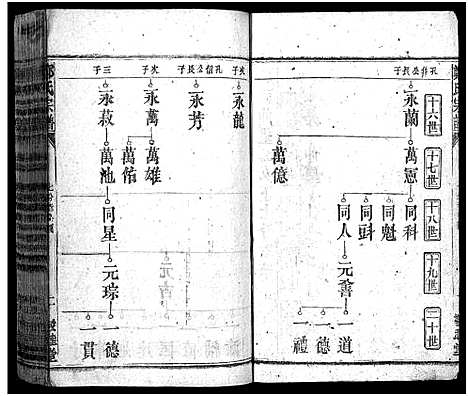 十六世
十七世
十八世
十九世
二十世
孔仕公長子
永蘭
萬憲
萬億
同科
同魁
同人
元善
一道
一德
一禮
次子
永龍
孔信公長子
永芳
次子
永萬
萬雄
萬佑
三子
永赦
萬池
同星
元琮
一德
一貫
氏宗譜